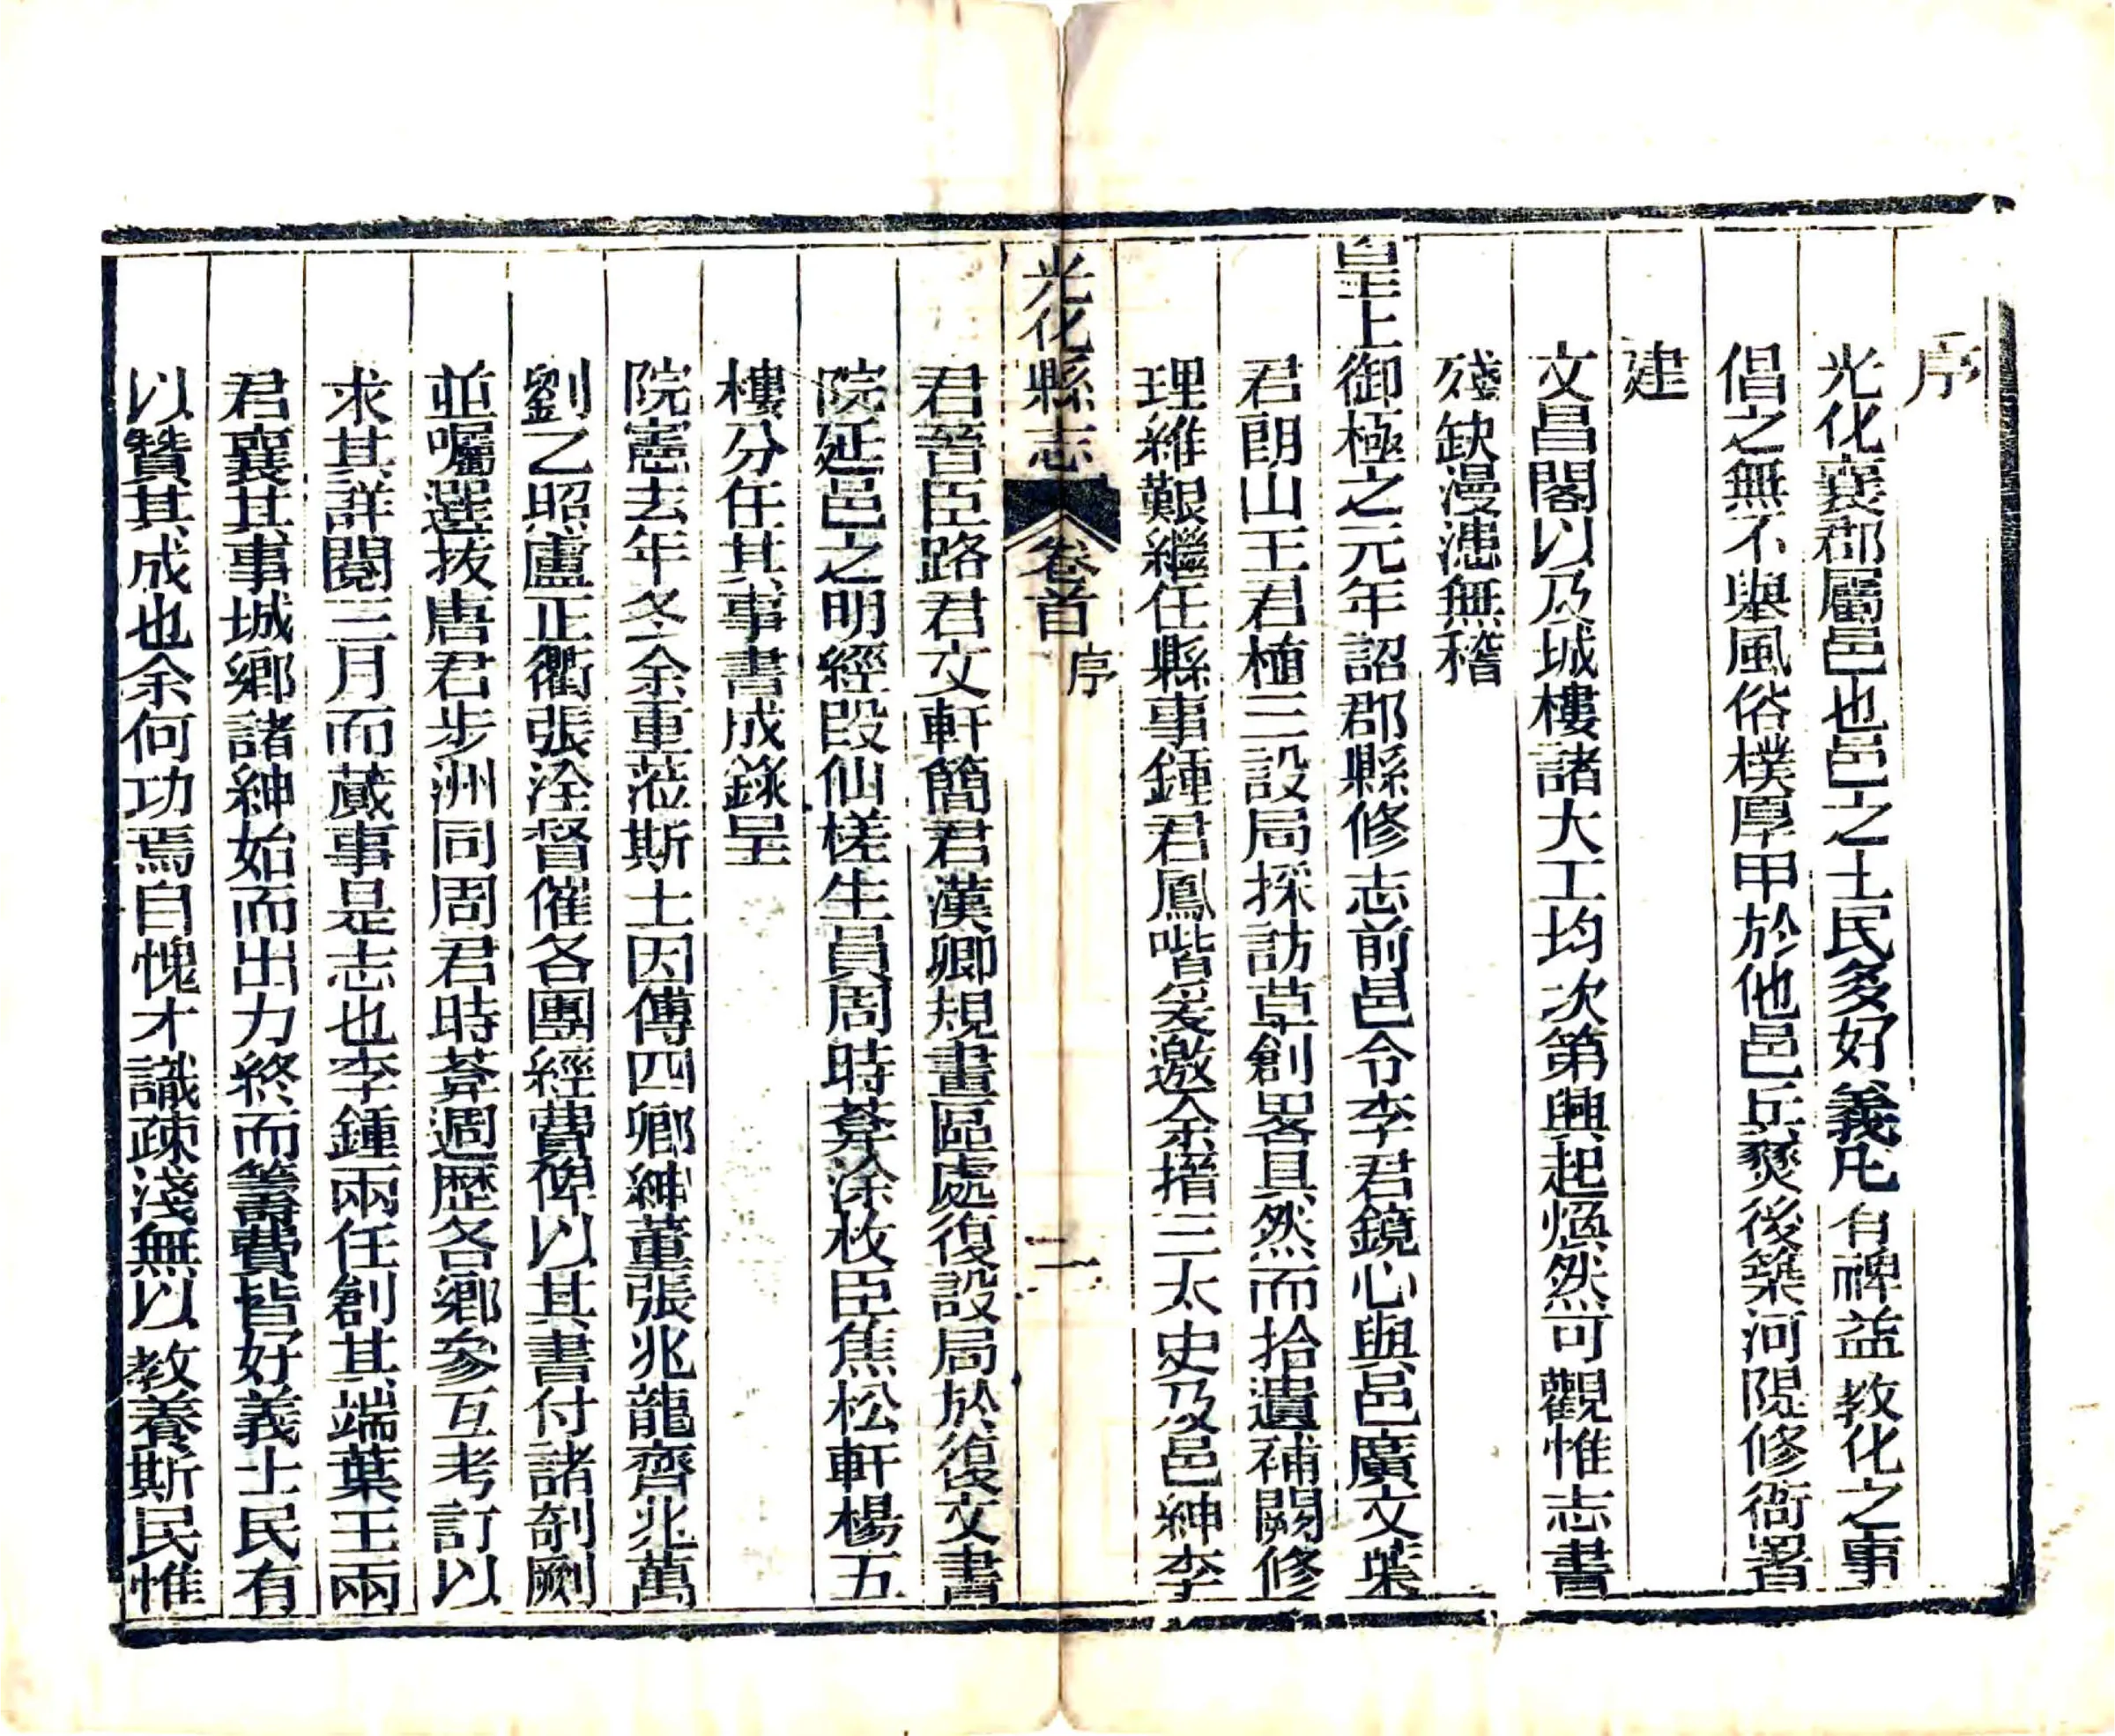 序
光化襄郡屬邑也邑之士民多好義凡有裨益教化之事
倡之無不舉風俗樸厚甲於他邑兵燹後築河隄修衙署
建
文昌閣以及城樓諸大工均次第興起煥然可觀惟志書
殘缺漫漶無稽
皇上御極之元年詔郡縣修志前邑令李君鏡心與邑廣文葉
君朗山王君植三設局採訪草創畧具然而拾遺補闕修
理維艱繼任縣事鍾君鳳喈爰邀余搢三太史及邑紳李
光化縣志 卷首 序 二
君晉臣路君文軒簡君漢卿規畫區處復設局於復文書
院延邑之明經段仙槎生員周時葊涂枚臣焦松軒楊五
樓分任其事書成錄呈
院憲去年冬余重蒞斯土因傳四鄉紳董張兆龍齊兆萬
劉乙照盧正衢張淦督催各團經費俾以其書付諸剞劂
並囑選拔唐君步洲同周君時葊週歷各鄉參互考訂以
求其詳閱三月而蕆事是志也李鍾兩任創其端葉王兩
君襄其事城鄉諸紳始而出力終而籌費皆好義士民有
以贊其成也余何功焉自愧才識疎淺無以教養斯民惟